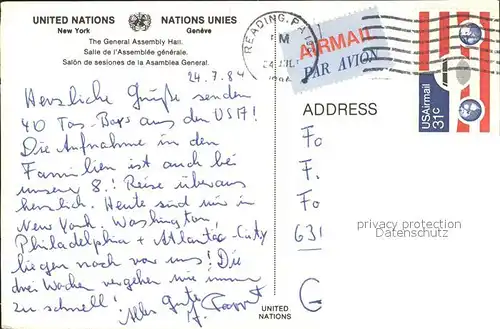 UNITED NATIONS NATIONS UNIES
New York Genève
The General Assembly Hall
Salle de l'Assemblée générale.
Salón de sesiones de la Asamblea General.
READING, PA
M
24 JUL
AIRMAIL
PAR AVION
USAirmail
31c
24.7.84
Herzliche Grüße senden
40 Tas-Boys aus den USA!
Die Aufnahme in den
Familien ist auch bei
unserer 8.! Reise überaus
herzlich. Heute sind wir in
New York. Washington,
Philadelphia + Atlantic-City
liegen noch vor uns! Die
drei Wochen vergehen wie immer
zu schnell! Alles Gute
ADDRESS
Fo
F.
Fo
631
G
privacy protection
Datenschutz
UNITED
NATIONS